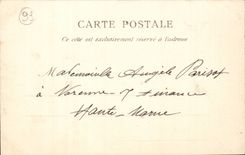 CARTE POSTALE
Ce côté est exclusivement réservé à l'adresse
Mademoiselle Angèle Parisot
à Varenne
Haute-Marne